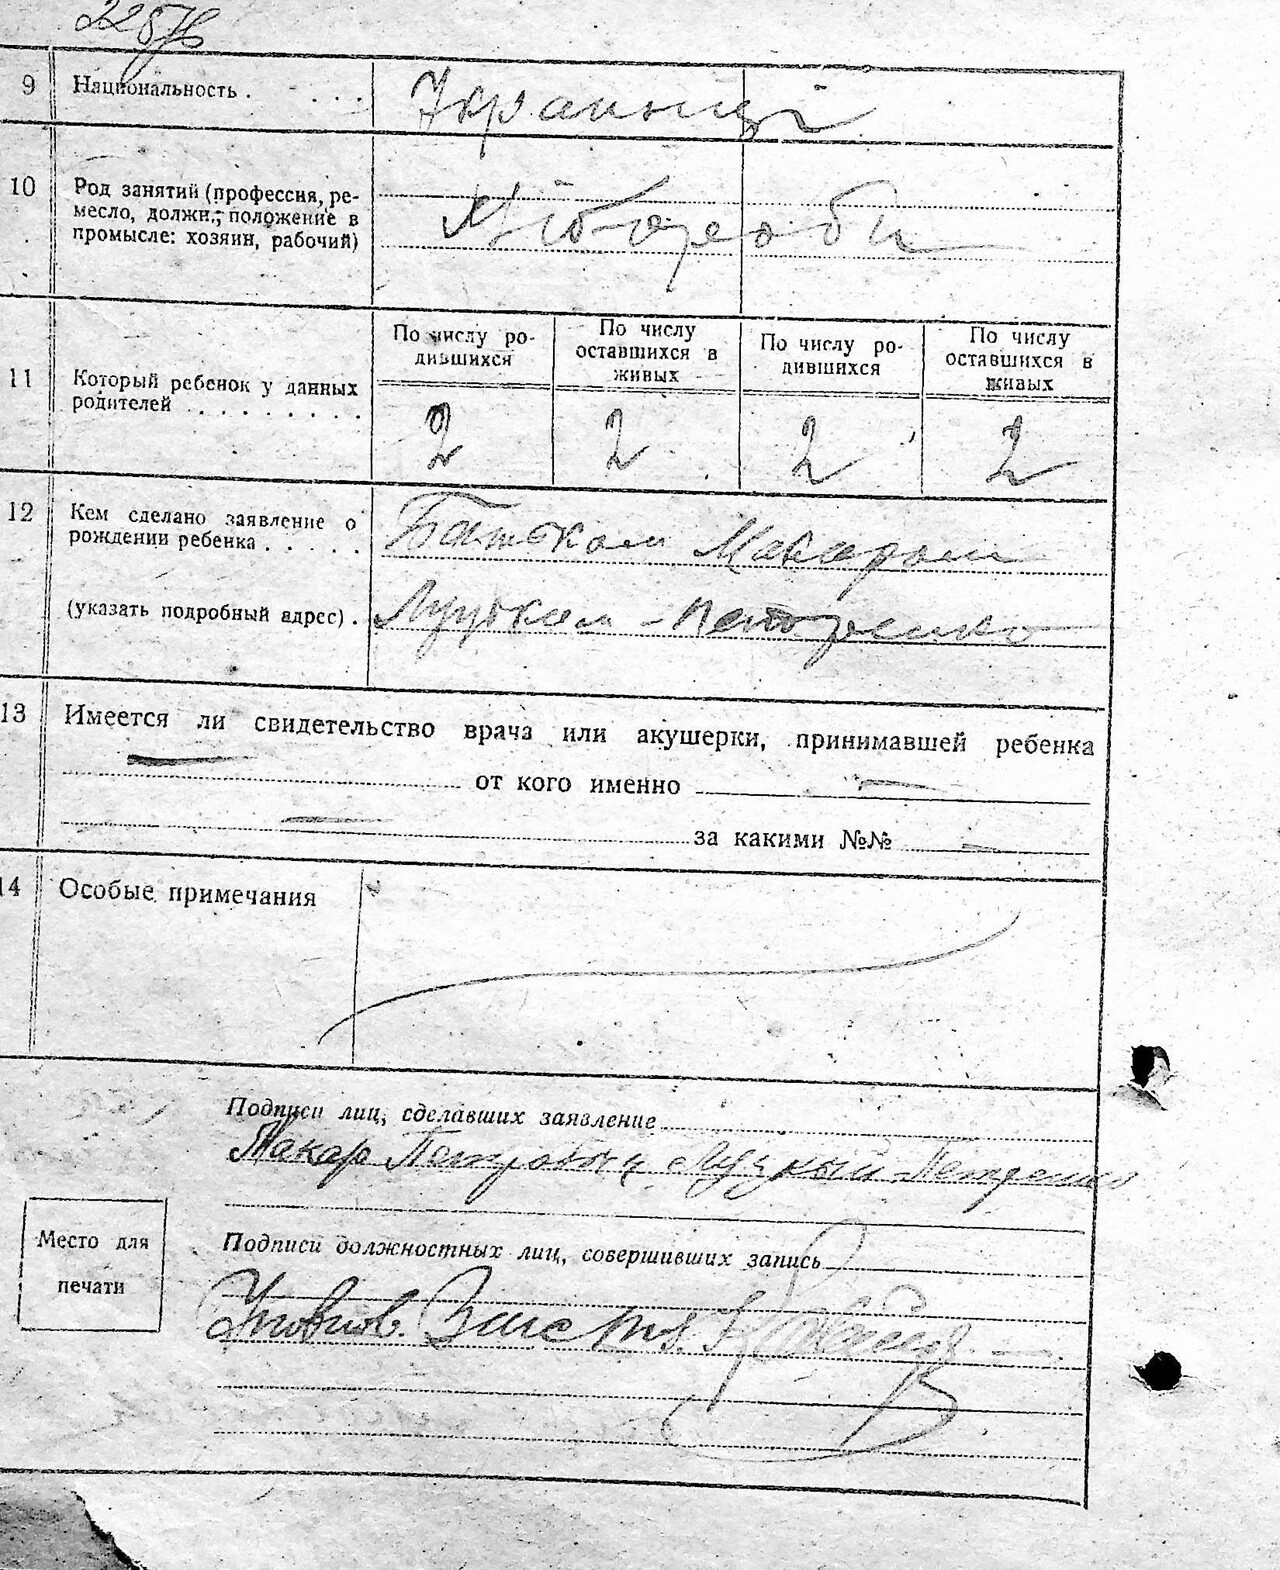 9 Национальность . . . . Українці
10 Род занятий (профессия, ре-
месло, должн., положение в
промысле: хозяин, рабочий)
Хлібороби
11 Который ребенок у данных
родителей . . . . . . . . .
По числу ро-
дившихся
По числу
оставшихся в
живых
По числу ро-
дившихся
По числу
оставшихся в
живых
2 2 2 2
12 Кем сделано заявление о
рождении ребенка . . . . .
Батьком Макаром
(указать подробный адрес) .
Луцьким - Петренко
13 Имеется ли свидетельство врача или акушерки, принимавшей ребенка
— от кого именно —
— за какими №№ —
14 Особые примечания
Подписи лиц, сделавших заявление
Макар Петрович Луцкый-Петренко
Место для
печати
Подписи должностных лиц, совершивших запись